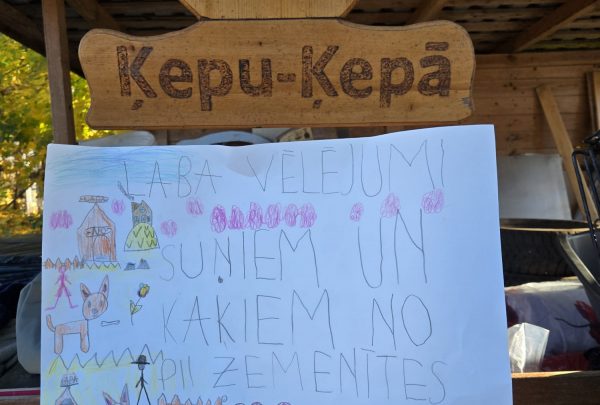 Ķepu-Ķepā
LABA VĒLĒJUMI
SUŅIEM UN
KAĶIEM NO
PII ZEMENĪTES